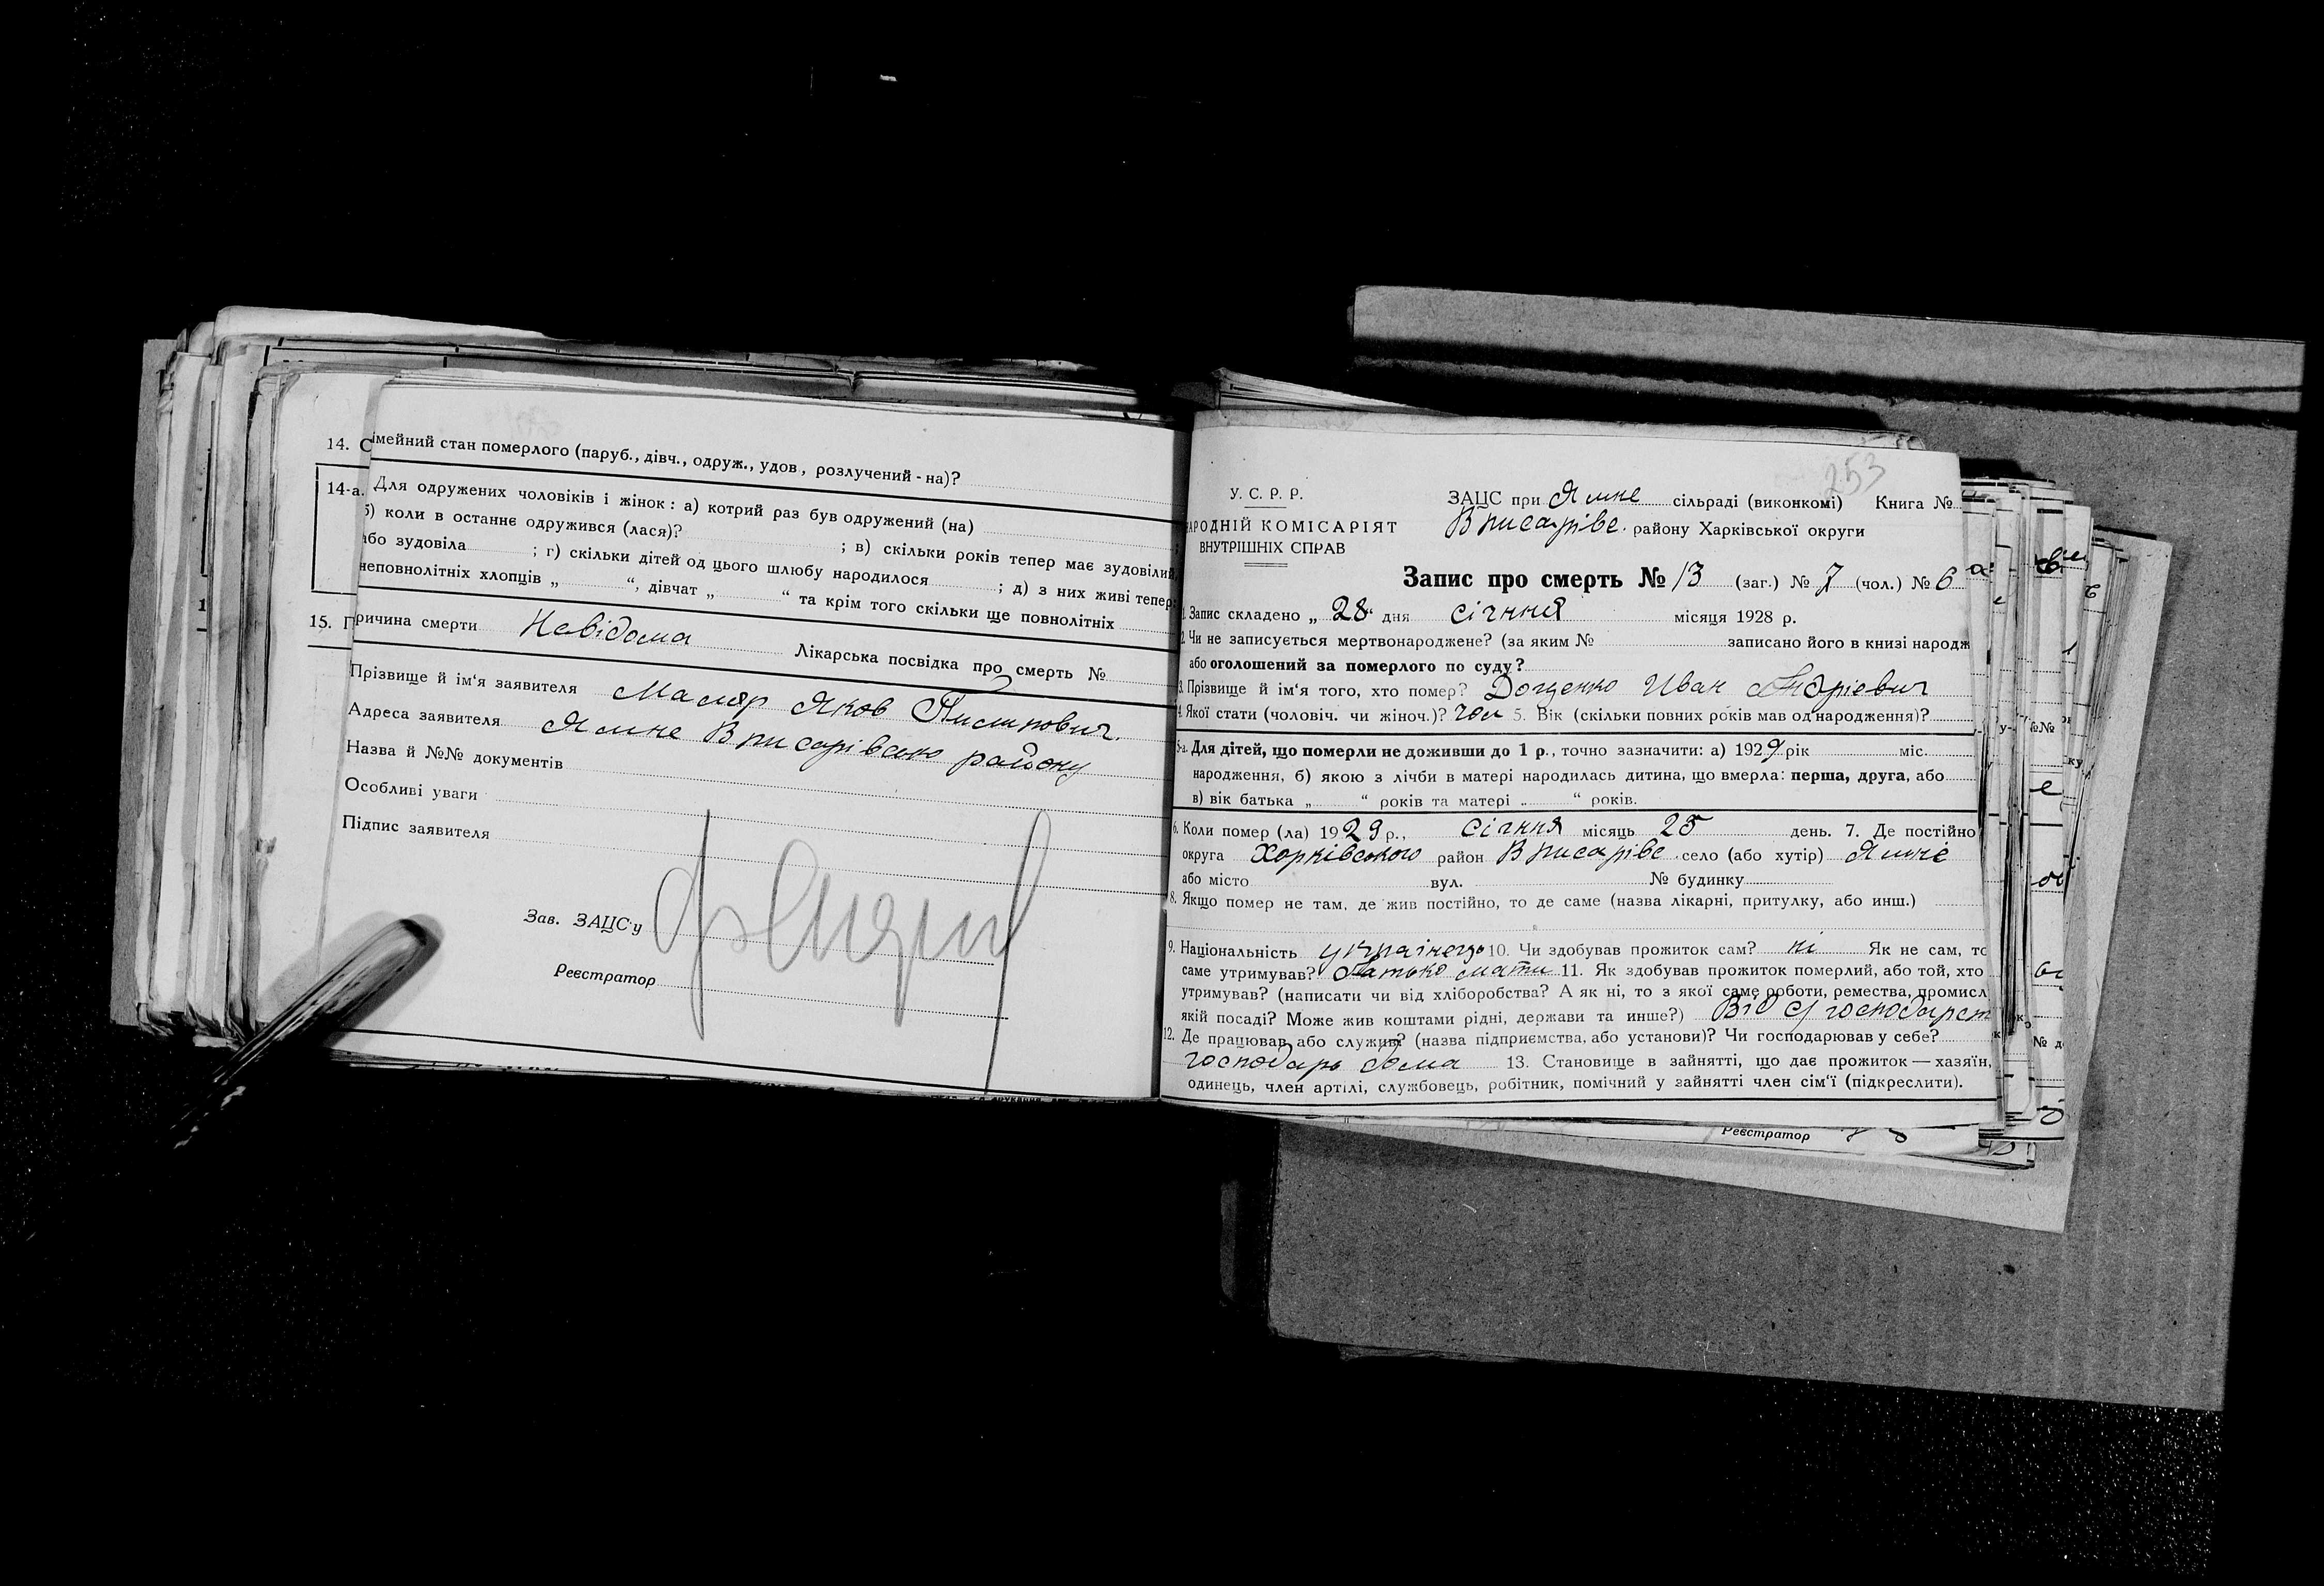 14. С імейний стан померлого (паруб., дівч., одруж., удов., розлучений - на)?
14-а. Для одружених чоловіків і жінок: а) котрий раз був одружений (на) ;
б) коли в останнє одружився (лася)? ; в) скільки років тепер має зудовілий,
або зудовіла ; г) скільки дітей од цього шлюбу народилося ; д) з них живі тепер:
неповнолітніх хлопців „ “, дівчат „ “ та крім того скільки ще повнолітніх
15. П ричина смерти Невідома Лікарська посвідка про смерть №
Прізвище й ім'я заявителя Маляр Яков Пилипович.
Адреса заявителя Ямне В писарівсько району
Назва й №№ документів
Особливі уваги
Підпис заявителя
Зав. ЗАЦС'у
Реєстратор
253
У. С. Р. Р.
НАРОДНІЙ КОМІСАРІЯТ
ВНУТРІШНІХ СПРАВ
ЗАЦС при Ямне сільраді (виконкомі) Книга №
В писарівс. району Харківської округи
Запис про смерть № 13 (заг.) № 7 (чол.) № 6
1. Запис складено „ 28 “ дня січня місяця 1928 р.
2. Чи не записується мертвонароджене? (за яким № записано його в книзі народж
або оголошений за померлого по суду?
3. Прізвище й ім'я того, хто помер? Доценко Иван Андріевич
4. Якої стати (чоловіч. чи жіноч.)? чол 5. Вік (скільки повних років мав од народження)?
5-а. Для дітей, що померли не доживши до 1 р., точно зазначити: а) 1929 рік міс.
народження, б) якою з лічби в матері народилась дитина, що вмерла: перша, друга, або
в) вік батька „ “ років та матері „ “ років.
6. Коли помер (ла) 1929 р., січня місяць 25 день. 7. Де постійно
округа Харківського район В писарівс. село (або хутір) Ямне
або місто вул. № будинку
8. Якщо помер не там, де жив постійно, то де саме (назва лікарні, притулку, або инш.)
9. Національність українець 10. Чи здобував прожиток сам? ні Як не сам, то
саме утримував? Батько мати 11. Як здобував прожиток померлий, або той, хто
утримував? (написати чи від хліборобства? А як ні, то з якої саме роботи, ремества, промисл
якій посаді? Може жив коштами рідні, держави та инше?) Від с/господарст
12. Де працював або служив? (назва підприємства, або установи)? Чи господарював у себе?
господарь дома 13. Становище в зайнятті, що дає прожиток — хазяїн,
одинець, член артілі, службовець, робітник, помічний у зайнятті член сім'ї (підкреслити).
Реєстратор